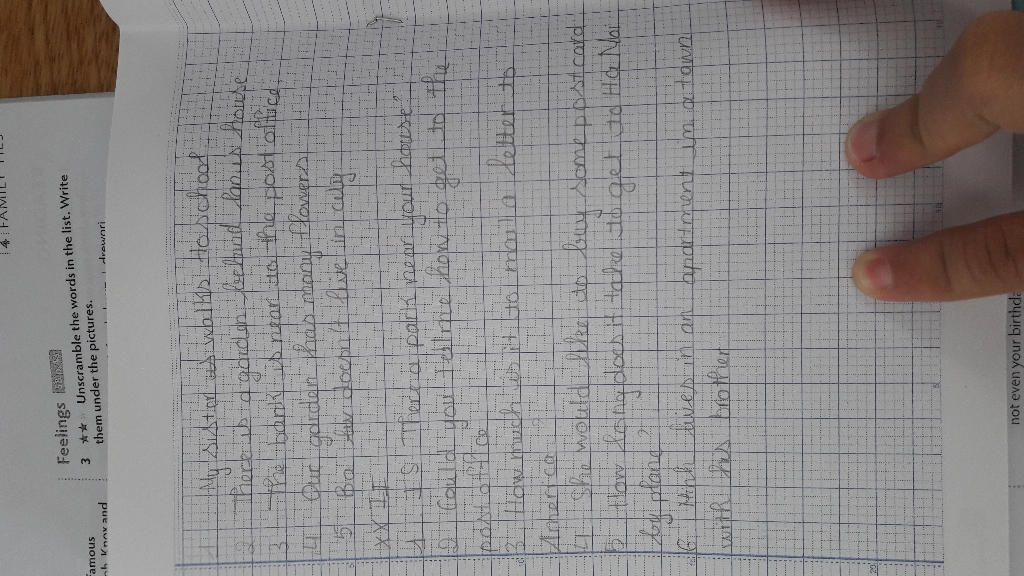 4 FAMILY TIES
Feelings
3 ★★ Unscramble the words in the list. Write
them under the pictures.
famous
1 My sistar is walks to school
2 There is a garden behind han is house
3 The bank is near to the post office
4 Our garden has many flowers
5 Ba doesn't live in city
XX II
1 IS There a park near your house?
2 Could you tell me how to get to the
post office
3 How much is it to mail a letter to
America
4 She would like to buy some postcard
5 How long does it take to get to Ha Noi
by plane?
6 Minh lives in an apartment in a town
with his brother
not even your birthda